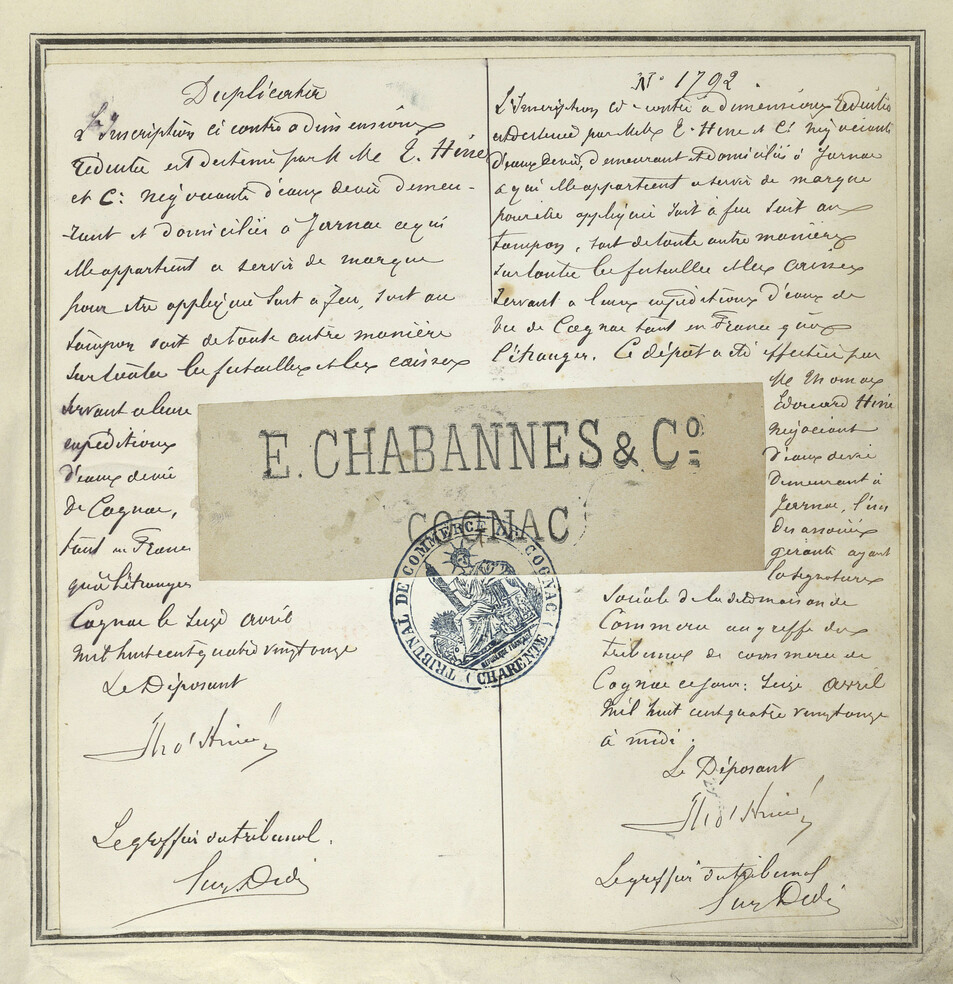 Duplicata
L'Inscription ci contre a dimensions
réduite est destiné par M Me E. Hine
et Cie négociants d'eaux devie demeu-
rant et domiciliés à Jarnac a qui
elle appartient a servir de marque
pour etre appliqué soit a feu, soit au
tampon soit de toute autre manière
sur toutes les futailles et les caisses
servant a leurs
expéditions
d'eaux devie
de Cognac,
tant en France
qu'a l'étranger
Cognac le seize avril
mil huit cent quatre vingt onze
Le Déposant
Thos Hine
Le greffier du tribunal.
N° 1792.
L'Inscription ci-contre a dimensions réduites
est destiné par MM E. Hine et Cie négociants
d'eaux devie, demeurant et domiciliés à Jarnac
a qui elle appartient a servir de marque
pour être appliqué soit à feu soit au
tampon, soit de toute autre manière
sur toutes les futailles et les caisses
servant a leurs expéditions d'eaux de
vie de Cognac tant en France qu'à
l'étranger. Ce dépôt a été effectué par
Mr Thomas
Edouard Hine
négociant
d'eaux devie
demeurant à
Jarnac, l'un
des associés
gérants ayant
la signature
sociale de la dite maison de
Commerce au greffe du
tribunal de commerce de
Cognac ce jour: seize avril
mil huit cent quatre vingt onze
à midi.
Le Déposant
Thos Hine
Le greffier du tribunal
E. CHABANNES & Co
COGNAC
TRIBUNAL DE COMMERCE DE COGNAC
(CHARENTE)
REPUBLIQUE FRANÇAISE